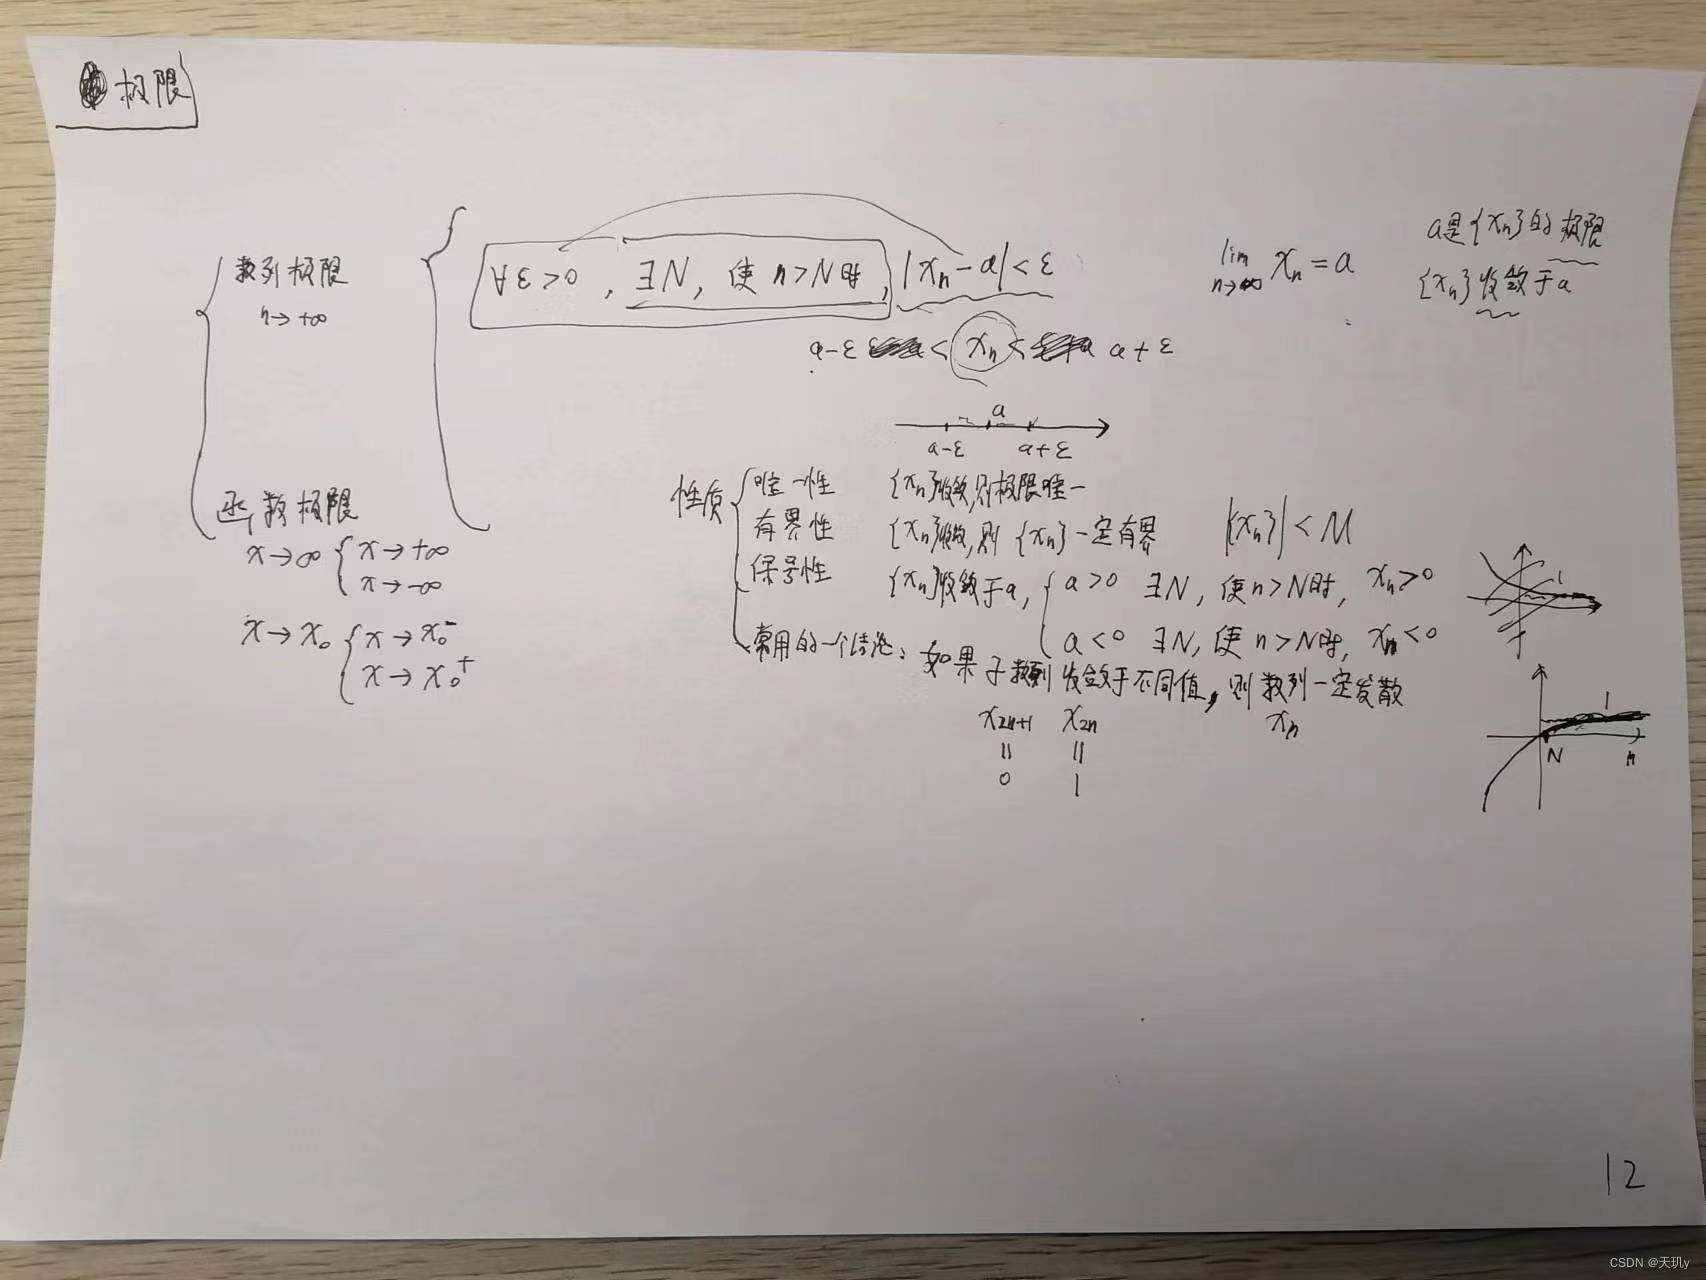 极限
数列极限
n→+∞
∀ε>0，∃N，使n>N时，|xₙ-a|<ε
lim n→∞ xₙ=a
a是{xₙ}的极限
{xₙ}收敛于a
a-ε < xₙ < a+ε
a
a-ε a+ε
函数极限
x→∞ { x→+∞
x→-∞
x→x₀ { x→x₀⁻
x→x₀⁺
性质
唯一性 {xₙ}收敛,则极限唯一
有界性 {xₙ}收敛,则{xₙ}一定有界 |{xₙ}|<M
保号性 {xₙ}收敛于a, { a>0 ∃N，使n>N时，xₙ>0
a<0 ∃N，使n>N时，xₙ<0
常用的一个结论：如果子数列收敛于不同值，则数列一定发散
x₂ₙ₊₁ x₂ₙ xₙ
= =
0 1
1
1
N n
12
CSDN @天玑y